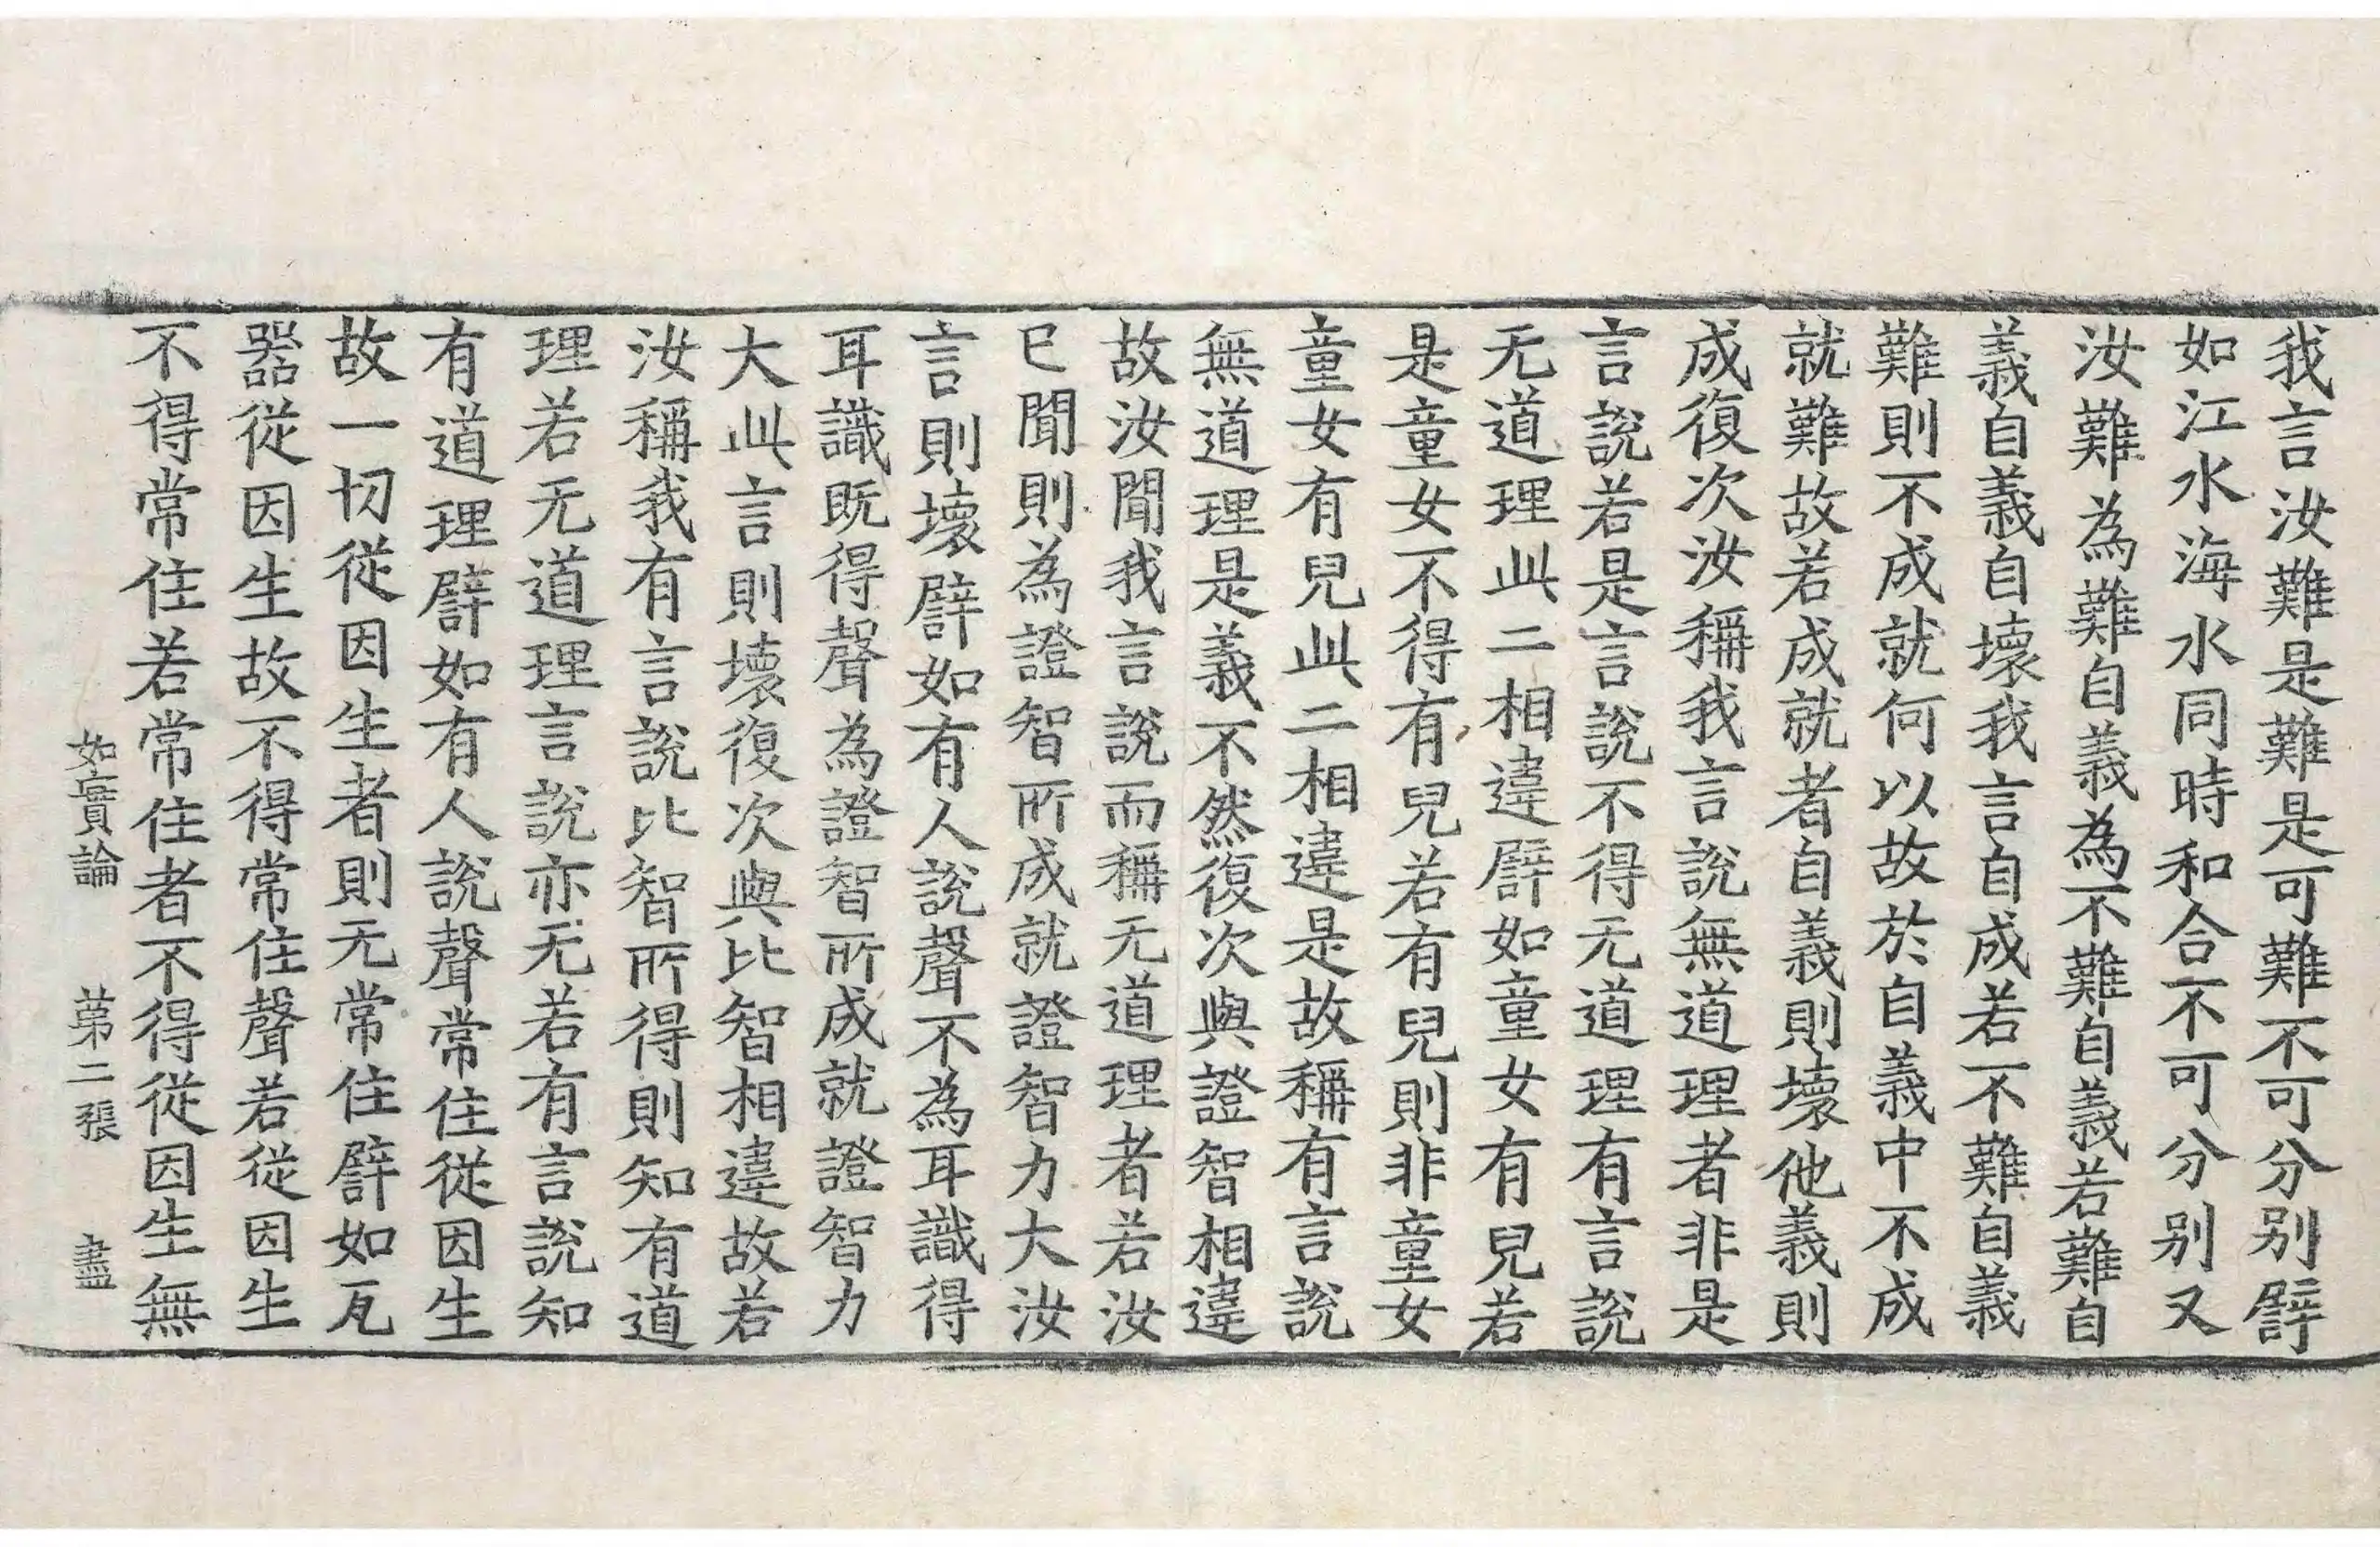 我言汝難是難是可難不可分别譬
如江水海水同時和合不可分别又
汝難為難自義為不難自義若難自
義自義自壞我言自成若不難自義
難則不成就何以故於自義中不成
就難故若成就者自義則壞他義則
成復次汝稱我言說無道理者非是
言說若是言說不得无道理有言說
无道理此二相違譬如童女有兒若
是童女不得有兒若有兒則非童女
童女有兒此二相違是故稱有言說
無道理是義不然復次與證智相違
故汝聞我言說而稱无道理者若汝
已聞則為證智所成就證智力大汝
言則壞譬如有人說聲不為耳識得
耳識既得聲為證智所成就證智力
大此言則壞復次與比智相違故若
汝稱我有言說比智所得則知有道
理若无道理言說亦无若有言說知
有道理譬如有人說聲常住從因生
故一切從因生者則无常住譬如瓦
器從因生故不得常住聲若從因生
不得常住若常住者不得從因生無
如實論 苐二張 盡